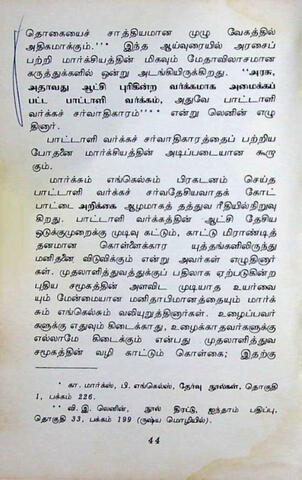 தொகையைச் சாத்தியமான முழு வேகத்தில்
அதிகமாக்கும்.''* இந்த ஆய்வுரையில் அரசைப்
பற்றி மார்க்சியத்தின் மிகவும் மேதாவிலாசமான
கருத்துக்களில் ஒன்று அடங்கியிருக்கிறது. ''அரசு,
அதாவது ஆட்சி புரிகின்ற வர்க்கமாக அமைக்கப்
பட்ட பாட்டாளி வர்க்கம், அதுவே பாட்டாளி
வர்க்கச் சர்வாதிகாரம்''** என்று லெனின் எழு
தினார்.
பாட்டாளி வர்க்கச் சர்வாதிகாரத்தைப் பற்றிய
போதனை மார்க்சியத்தின் அடிப்படையான கூறு
கும்.
மார்க்சும் எங்கெல்சும் பிரகடனம் செய்த
பாட்டாளி வர்க்கச் சர்வதேசியவாதக் கோட்
பாட்டை அறிக்கை ஆழமாகத் தத்துவ ரீதியில்நிறுவு
கிறது. பாட்டாளி வர்க்கத்தின் ஆட்சி தேசிய
ஒடுக்குமுறைக்கு முடிவு கட்டும், காட்டு மிராண்டித்
தனமான கொள்ளைக்கார யுத்தங்களிலிருந்து
மனிதனை விடுவிக்கும் என்று அவர்கள் எழுதினார்
கள். முதலாளித்துவத்துக்குப் பதிலாக ஏற்படுகின்ற
புதிய சமூகத்தின் அளவிட முடியாத உயர்வை
யும் மேன்மையான மனிதாபிமானத்தையும் மார்க்
சும் எங்கெல்சும் வலியுறுத்தினார்கள். உழைப்பவர்
களுக்கு எதுவும் கிடைக்காது, உழைக்காதவர்களுக்கு
எல்லாமே கிடைக்கும் என்பது முதலாளித்துவ
சமூகத்தின் வழி காட்டும் கொள்கை; இதற்கு
* கா. மார்க்ஸ், பி. எங்கெல்ஸ், தேர்வு நூல்கள், தொகுதி
1, பக்கம் 226.
** வி. இ. லெனின், நூல் திரட்டு, ஐந்தாம் பதிப்பு,
தொகுதி 33, பக்கம் 199 (ருஷ்ய மொழியில்).
44